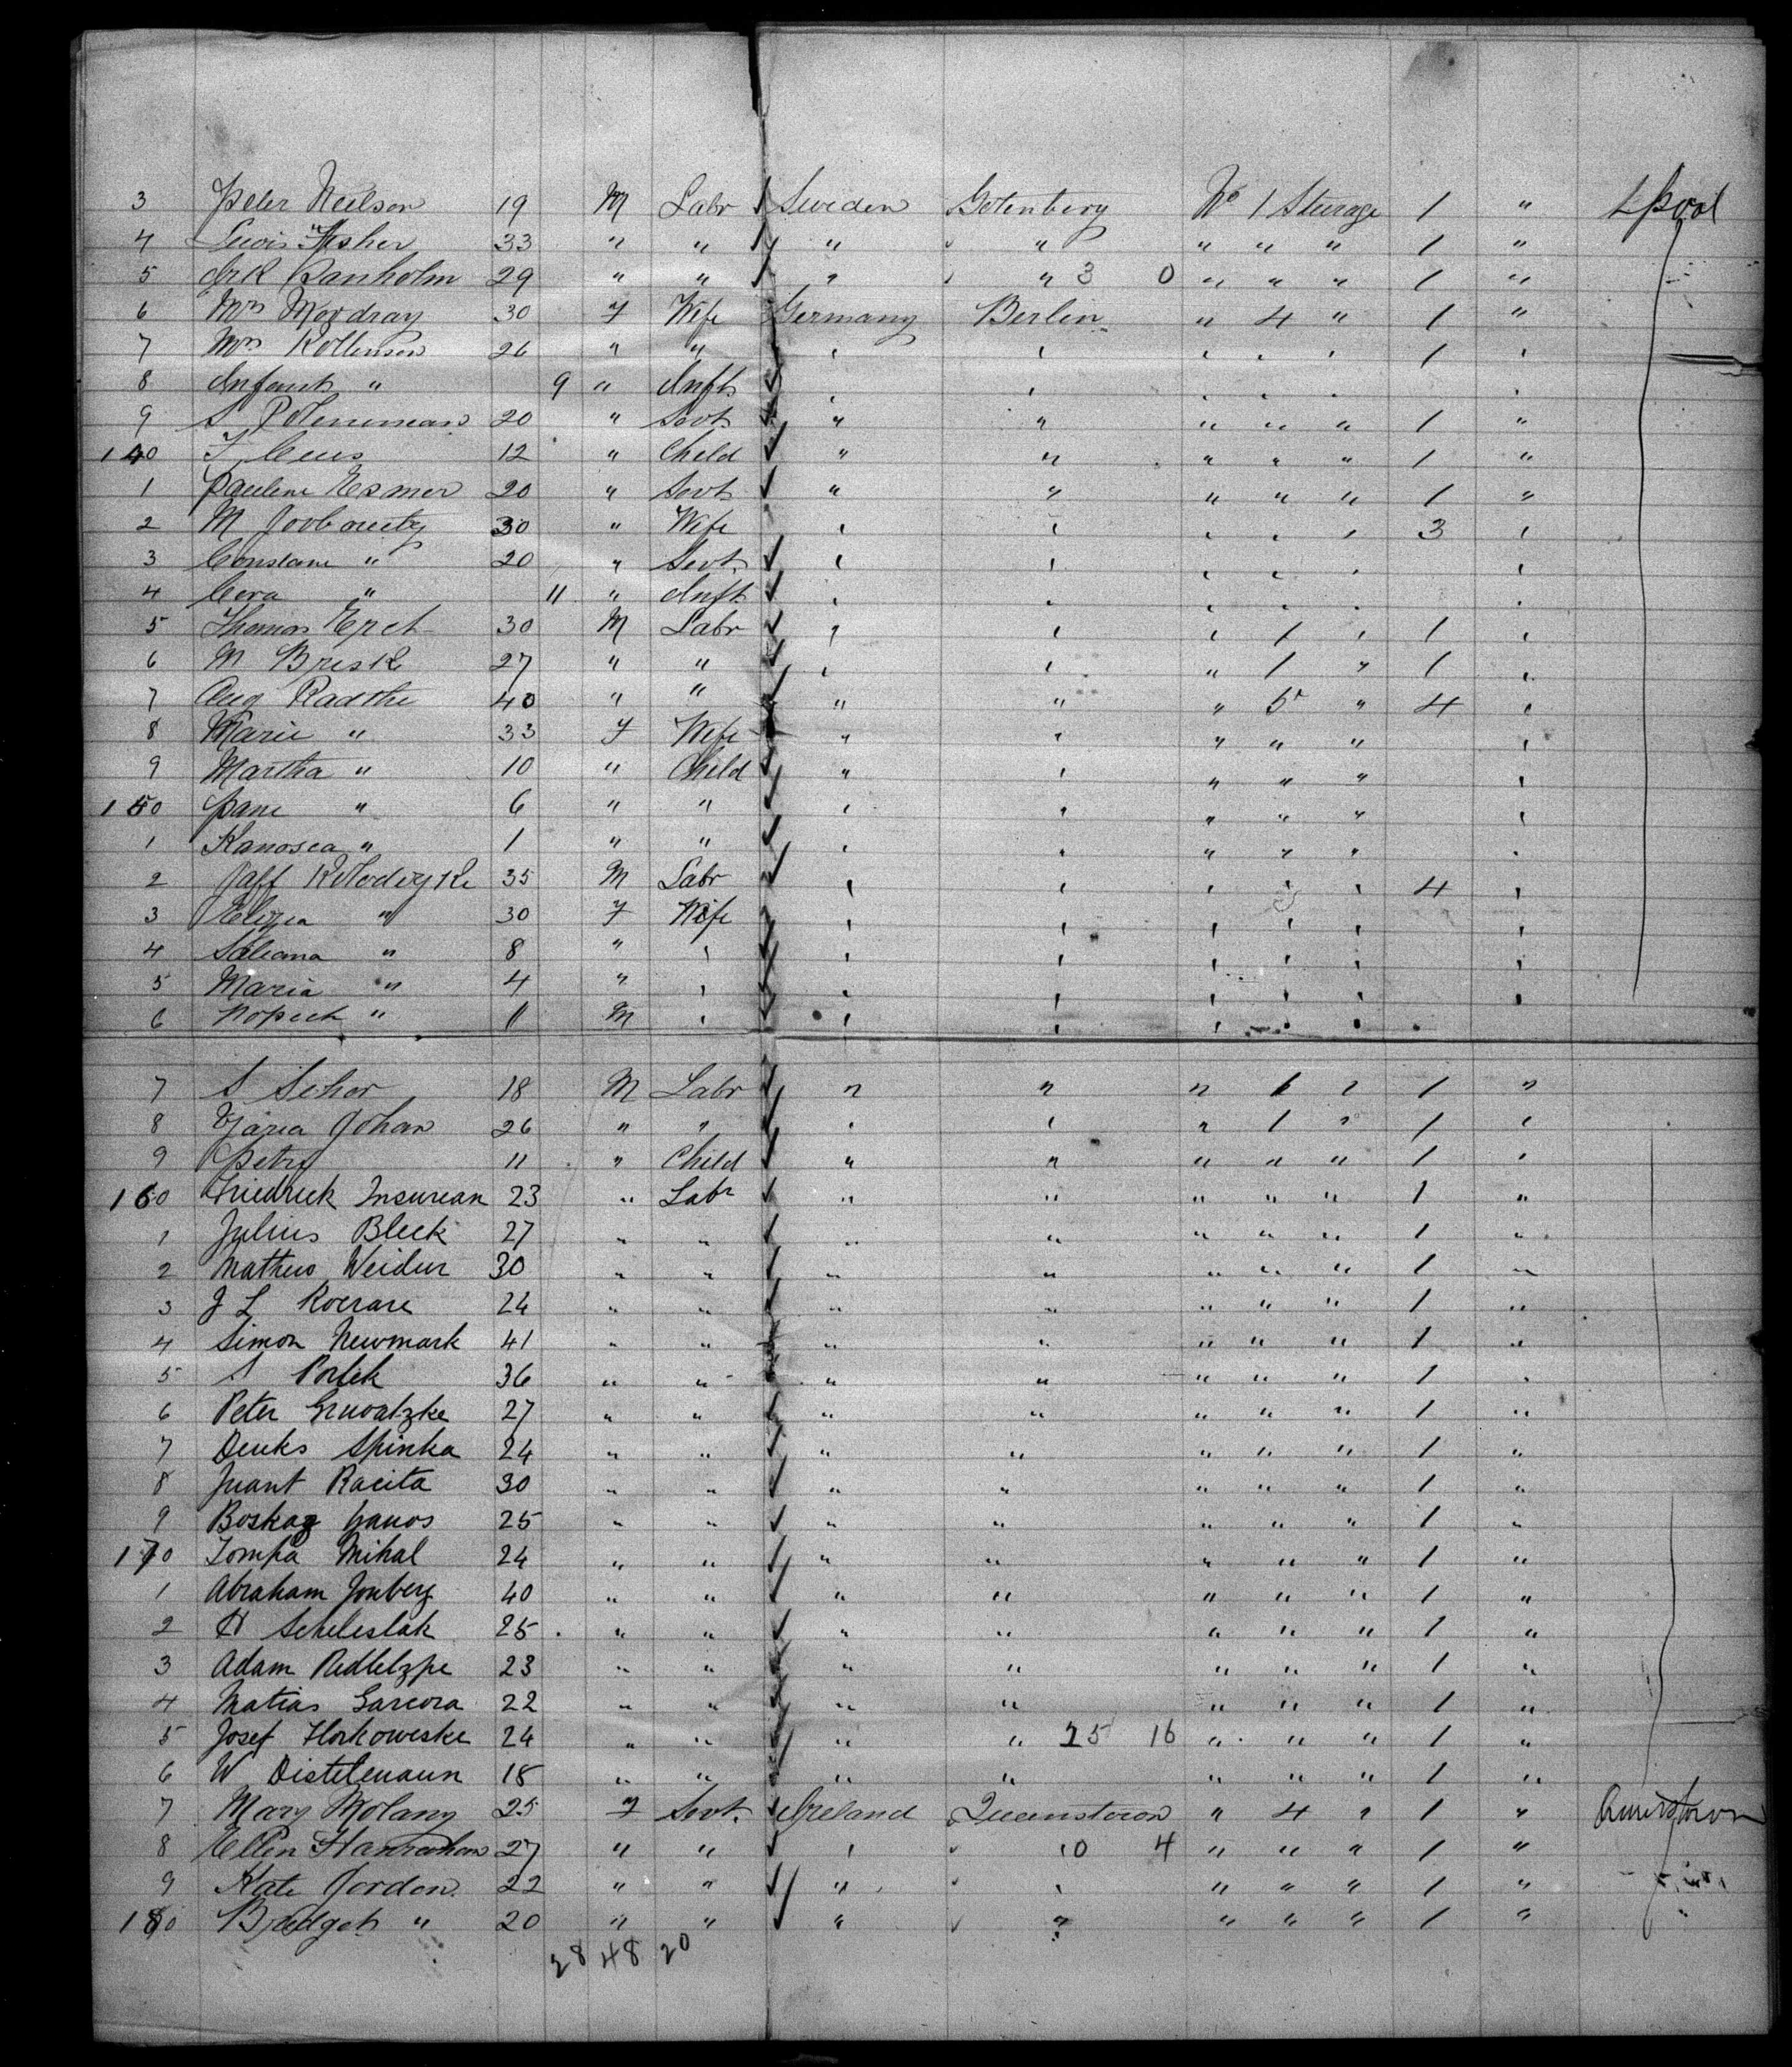 3 Peter Neilson 19 M Labr / Sweden Gotenberg No 1 Sturage 1 " Lpool
4 Lewis Fisher 33 " " / " " " " " 1 "
5 29 " " / " " 3 0 " " " 1 "
6 Mrs Moodray 30 F Wife Germany Berlin " 4 " 1 "
7 Mrs Rollinson 26 " " " " " " " 1 "
8 Infant " 9 " Inft ✓ " " " " " "
9 S 20 " Servt ✓ " " " " " 1 "
140 12 " Child ✓ " " " " " 1 "
1 Pauline Esmer 20 " Servt ✓ " " " " " 1 "
2 M 30 " Wife " " " " " 3 "
3 Constane " 20 " Servt ✓ " " " " " "
4 Cora " 11 " Inft ✓ " " " " " "
5 Thomas 30 M Labr ✓ " " " 1 " 1 "
6 M Briske 27 " " ✓ " " " 1 " 1 "
7 Aug Radthe 40 " " ✓ " " " 5 " 4 "
8 Marie " 33 F Wife " " " " " "
9 Martha " 10 " Child ✓ " " " " " "
150 Jane " 6 " " ✓ " " " " " "
1 Kanosca " 1 " " ✓ " " " " " "
2 Jaff 35 M Labr ✓ " " " " 4 "
3 " 30 F Wife " " " " " "
4 Saleana " 8 " " ✓ " " " " " "
5 Maria " 4 " " ✓ " " " " " "
6 " 11 M " ✓ " " " " "
7 S Schor 18 M Labr ✓ " " " 1 " 1 "
8 Johan 26 " " ✓ " " " 1 " 1 "
9 Petry 11 " Child ✓ " " " " " 1 "
160 Friedrick Insurean 23 " Labr ✓ " " " " " 1 "
1 Julius Bleck 27 " " ✓ " " " " " 1 "
2 Mathew Weidur 30 " " ✓ " " " " " 1 "
3 J L Roerare 24 " " ✓ " " " " " 1 "
4 Simon Newmark 41 " " " " " " " 1 "
5 S Portek 36 " " " " " " " 1 "
6 Peter Gruvatzke 27 " " ✓ " " " " " 1 "
7 Deuks Spinka 24 " " ✓ " " " " " 1 "
8 Juant Racita 30 " " ✓ " " " " " 1 "
9 Boskay Janos 25 " " ✓ " " " " " 1 "
170 Tompa Mihal 24 " " ✓ " " " " " 1 "
1 Abraham Jonberg 40 " " ✓ " " " " " 1 "
2 Scheleslak 25 " " ✓ " " " " " 1 "
3 Adam Redletzpe 23 " " ✓ " " " " " 1 "
4 Matias Garcora 22 " " ✓ " " " " " 1 "
5 Josef Horkoweske 24 " " ✓ " " 25 16 " " " 1 "
6 W Distelmann 18 " " ✓ " " " " " 1 "
7 Mary Molany 25 F Servt. ✓ Ireland Queenstown " 4 " 1 " Queenstown
8 Ellen Hanrahan 27 " " ✓ " 10 4 " " " 1 "
9 Kate Jordon 22 " " ✓ " " " " " 1 "
180 Bridget " 20 " " ✓ " " " " " 1 "
28 48 20